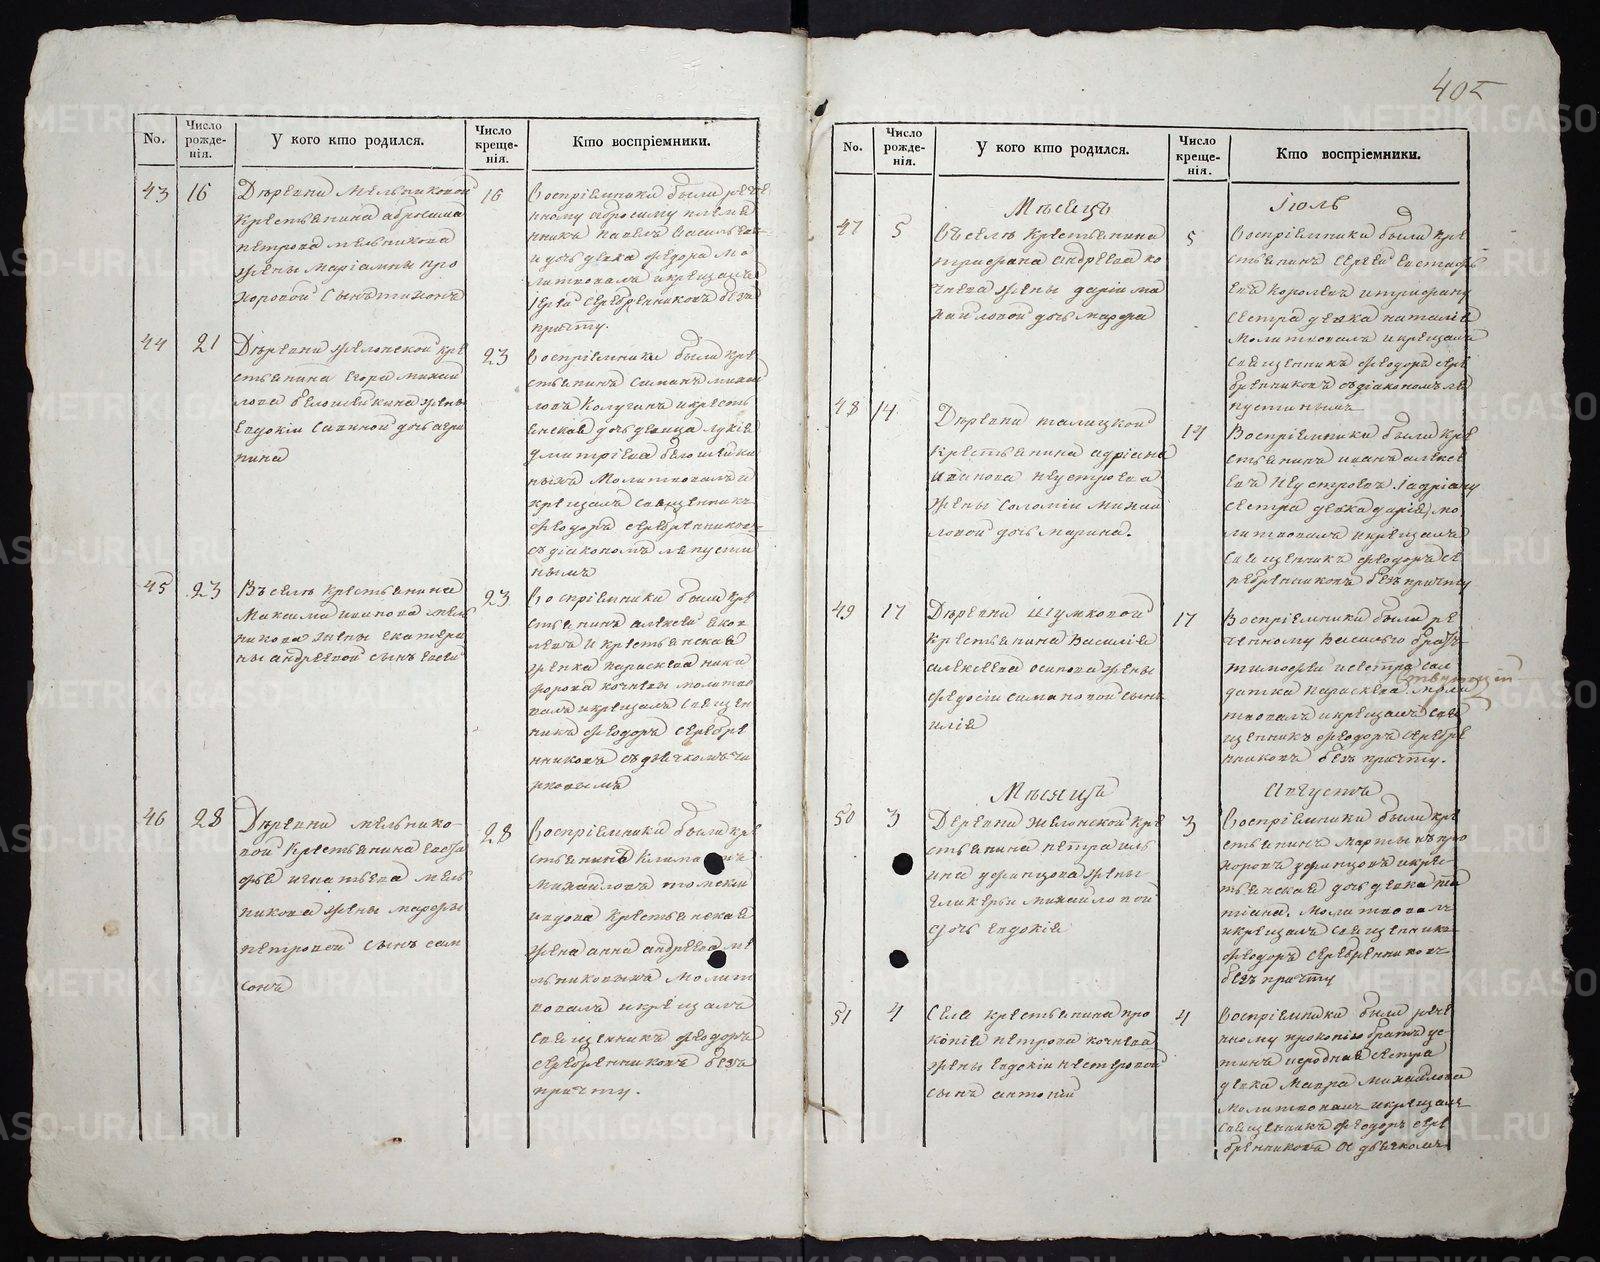 405
No.
Число рожде-нія.
У кого кто родился.
Число креще-нія.
Кто воспріемники.
43
16
Деревни Мельниковой
крестьянина Абросима
Петрова Мельникова
жены Маріамны Про
хоровой сынъ Тихонъ
16
Воспріемники были рече
нному Абросиму племя
нникъ Павелъ Васильевъ
и дочь девка Федора мо
литвовалъ и крещалъ
Іерей Серебренниковъ безъ
причту.
44
21
Деревни Жлонской кре
стьянина Егора Михай
лова Белошейкина жены
Евдокіи Савиной дочь Агри
пина
23
Воспріемники были кре
стьянинъ Симанъ Михай
ловъ Калугинъ и кресть
янская дочь девица Лукія
Дмитріева Белошейки
ныхъ Молитвовалъ и
крещалъ священникъ
Феодоръ Серебренниковъ
съ діакономъ Лепусти
нымъ
45
23
Въ селе крестьянина
Максима Иванова Мель
никова жены Екатери
ны Андреевой сынъ Евсей
23
Воспріемники были кре
стьянинъ Алексей Яков
левъ и крестьянская
женка Параскева Ники
форова Кочневы молитво
валъ и крещалъ священ
никъ Феодоръ Серебре
нниковъ съ дьячкомъ Чи
рковымъ
46
28
Деревни Мельнико-
вой крестьянина Евста
фья Игнатьева Мель
никова жены Марфы
Петровой сынъ Сам
сонъ
28
Воспріемники были кре
стьянинъ
Михайловъ
вдова крестьянская
жена Анна Андреева Ме
льниковыхъ Молит
вовалъ и крещалъ
священникъ Феодоръ
Серебренниковъ безъ
причту.
No.
Число рожде-нія.
У кого кто родился.
Число креще-нія.
Кто воспріемники.
Месецъ
Іюль
47
5
Въ селе крестьянина
Трифана Андреева Ко
чнева жены Даріи Ми
хайловой дочь Марфа
5
Воспріемники были кре
стьянинъ Сергей Евстафь
евъ Королевъ и Трифану
сестра девка Наталія
Молитвовалъ и крещалъ
священникъ Феодоръ Сере
бренниковъ съ діакономъ Ле
пустинымъ
48
14
Деревни Талицкой
крестьянина Адріана
Иванова Неустроева
жены Соломіи Михай
ловой дочь Марина.
14
Воспріемники были кре
стьянинъ Иванъ Алексе
евъ Неустроевъ Іадріану
сестра девка Дарія, мо
литвовалъ и крещалъ
священникъ Феодоръ Се
ребренниковъ безъ причту
49
17
Деревни Шумковой
крестьянина Василія
Алексеева Осипова жены
Федосіи Симановой сынъ
Илія
17
Воспріемники были ре
ченному Василью братъ
Тимофей и сестра сол
датка Параскева. Моли
твовалъ и крещалъ свя
щенникъ Феодоръ Серебре
нниковъ безъ причту.
Месяцъ
Августъ
50
3
Деревни Жлонской кре
стьянина Петра Иль
ина Уфинцова жены
Гликерьи Михайловой
дочь Евдокія
3
Воспріемники были кре
стьянинъ Мартынъ Про
хоровъ Уфинцовъ и крес
тьянская дочь девка Та
тіана. Молитвовалъ
и крещалъ священникъ
Феодоръ Серебренниковъ
безъ причту
51
4
Села крестьянина Про
копія Петрова Кочнева
жены Евдокіи Нестеровой
сынъ Антоній
4
Воспріемники были рече
нному Прокопію братъ Ус
тинъ и сродная сестра
девка Мавра Михайлова
Молитвовалъ и крещалъ
священникъ Феодоръ Сере
бренниковъ съ дьячкомъ
METRIKI.GASO-URAL.RU